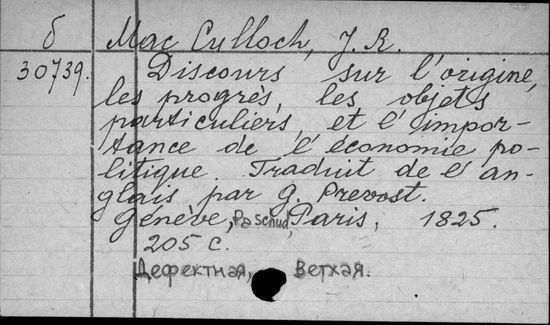 б Mac Culloch, J. R.
30739. Discours sur l'origine,
les progrès, les objets
particuliers, et l'impor-
tance de l'économie po-
litique. Traduit de l'an-
glais par G. Prevost.
Genève, Paschud, Paris, 1825.
205 с.
Дефектная, Ветхая.